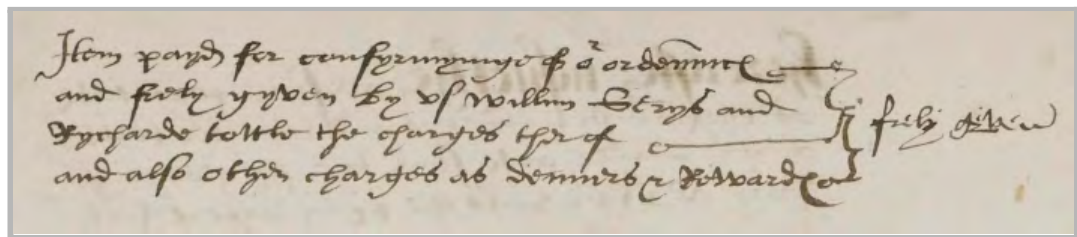 Item payd for confyrmynge of oʳ ordennnc͡es
and frely gyven by vs Willm Serys and
Rycharde tottle the charges ther of
and also other charges as denners & Rewardes
frely geven